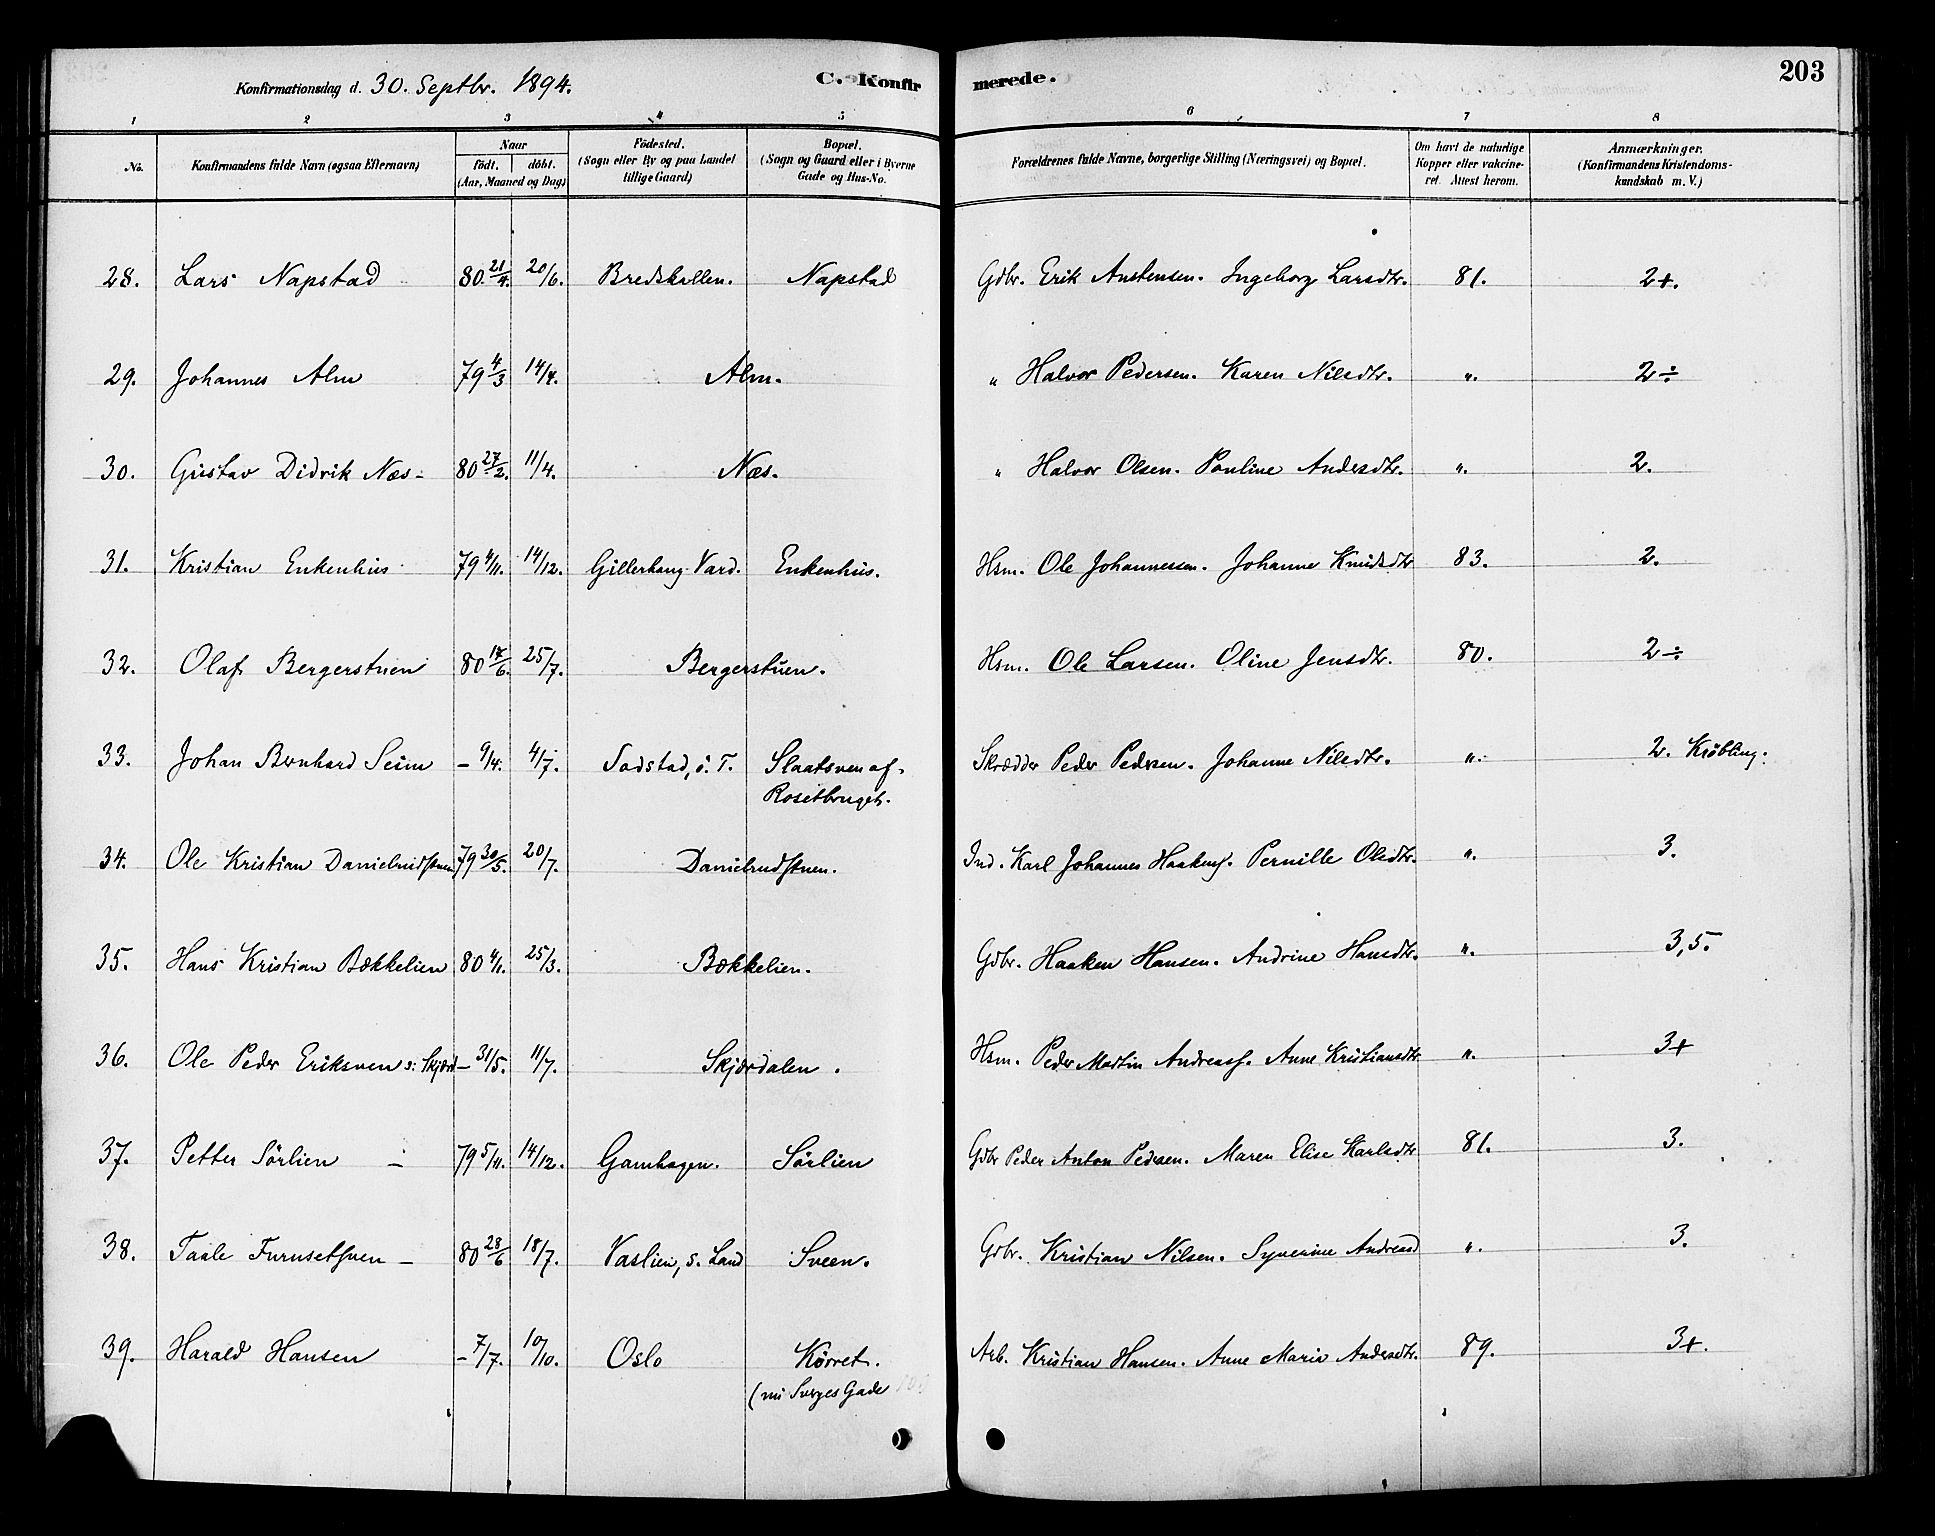 Konfirmationsdag d. 30. Septbr. 1894. C. Konfir merede. 203
1 2 3 4 5 6 7 8
No. Konfirmandens fulde Navn (ogsaa Efternavn) Naar födt. döbt. (Aar, Maaned og Dag) Födested. (Sogn eller By og paa Landet tillige Gaard) Bopæl. (Sogn og Gaard eller i Byerne Gade og Hus-No. Forældrenes fulde Navne, borgerlige Stilling (Næringsvei) og Bopæl. Om havt de naturlige Kopper eller vakcineret. Attest herom. Anmærkninger. (Konfirmandens Kristendomskundskab m. V.)
28. Lars Napstad 80 21/4. 20/6. Bredskallen. Napstad Gdbr. Erik Austensen. Ingeborg Larsdtr. 81. 2+.
29. Johannes Alm 79 4/3 14/4. Alm. " Halvor Pedersen. Karen Nilsdtr. ". 2÷
30. Gustav Didrik Næs- 80 27/2. 11/4. Næs. " Halvor Olsen. Pauline Andersdtr. ". 2.
31. Kristian Enkenhus 79 4/11. 14/12. Gillerhaug Vard. Enkenhus. Hsm. Ole Johannessen. Johanne Knudsdtr 83. 2.
32. Olaf Bergerstuen 80 17/6. 25/7. Bergerstuen. Hsm. Ole Larsen. Oline Jensdtr. 80. 2÷
33. Johan Bernhard Seim – 9/4. 4/7. Sadstad, ö. T. Slaatsveen af- Skrædder Peder Pedersen. Johanne Nilsdtr. ". 2. Krøbling.
Rosetbruget.
34. Ole Kristian Danielrudstuen 79 30/5. 20/7. Danielrudstuen. Ind. Karl Johannes Haakens. Pernille Olsdtr. ". 3.
35. Hans Kristian Bækkelien 80 4/1. 25/3. Bækkelien. Gdbr. Haaken Hansen. Andrine Hansdtr. ". 3,5.
36. Ole Peder Eriksveen s: Skjærd – 31/5. 11/7. Skjærdalen. Hsm. Peder Martin Andreass. Anne Kristiansdtr. ". 3+
37. Petter Sörlien – 79 5/11. 14/12. Gamhagen. Sörlien Gdbr Peder Anton Pedersen. Maren Elise Karlsdtr 81. 3.
38. Taale Furusetsveen – 80 28/6 18/7. Vaslien, s. Land Sveen. Gdbr. Kristian Nilsen. Syverine Andreasd ". 3.
39. Harald Hansen – 7/7. 10/10. Oslo Körret. Arb. Kristian Hansen. Anne Marie Andersdtr. 89. 3+.
(nu Sverges Gade